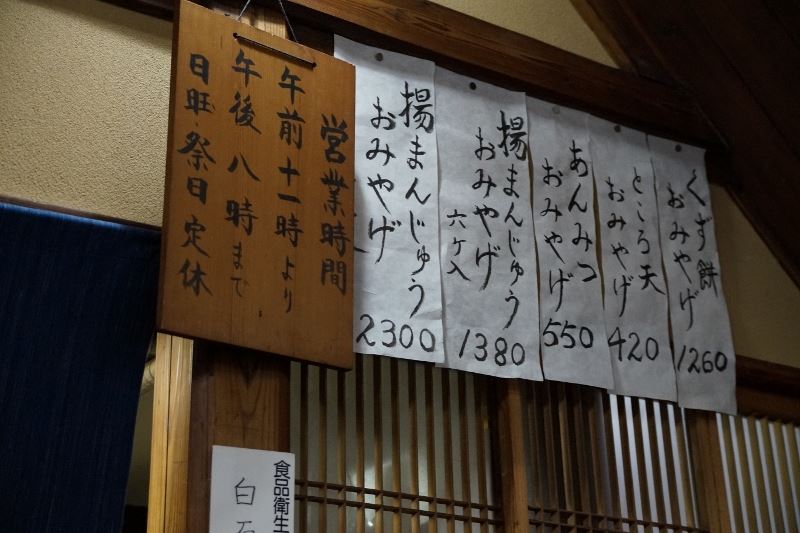 営業時間
午前十一時より
午後八時まで
日旺祭日定休
くず餅
おみやげ
1260
ところ天
おみやげ
420
あんみつ
おみやげ
550
揚まんじゅう
おみやげ
六ヶ入
1380
揚まんじゅう
おみやげ
2300
食品衛生
白石